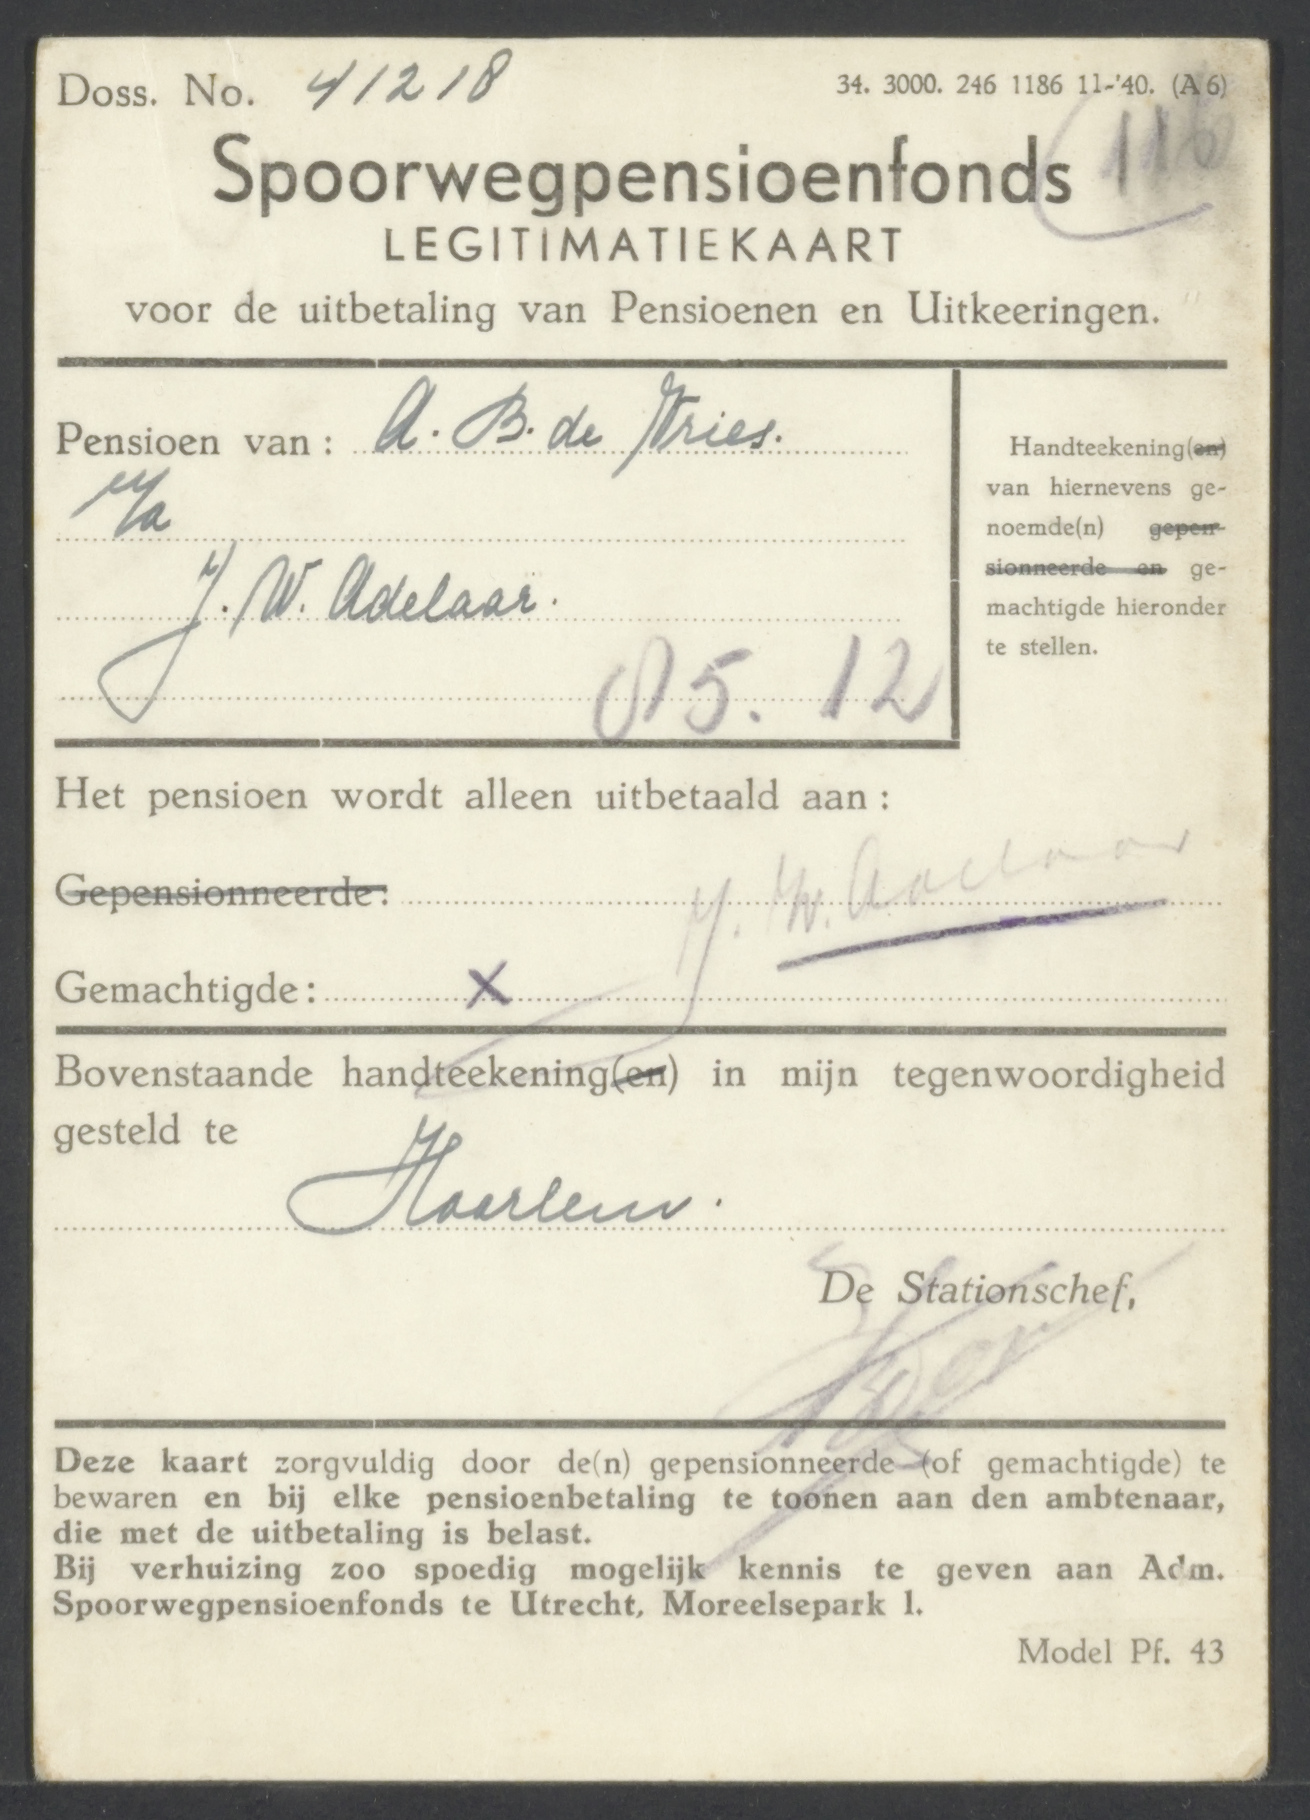 Doss. No. 41218
34. 3000. 246 1186 11-'40. (A 6)
116
Spoorwegpensioenfonds
LEGITIMATIEKAART
voor de uitbetaling van Pensioenen en Uitkeeringen.
Pensioen van: A. B. de Vries.
J. W. Adelaar.
5. 12
Handteekening(en)
van hiernevens ge-
noemde(n) gepen-
sionneerde en ge-
machtigde hieronder
te stellen.
Het pensioen wordt alleen uitbetaald aan:
Gepensionneerde:
J. W. Adelaar
Gemachtigde: X
Bovenstaande handteekening(en) in mijn tegenwoordigheid
gesteld te
Haarlem.
De Stationschef,
Deze kaart zorgvuldig door de(n) gepensionneerde (of gemachtigde) te
bewaren en bij elke pensioenbetaling te toonen aan den ambtenaar,
die met de uitbetaling is belast.
Bij verhuizing zoo spoedig mogelijk kennis te geven aan Adm.
Spoorwegpensioenfonds te Utrecht, Moreelsepark 1.
Model Pf. 43